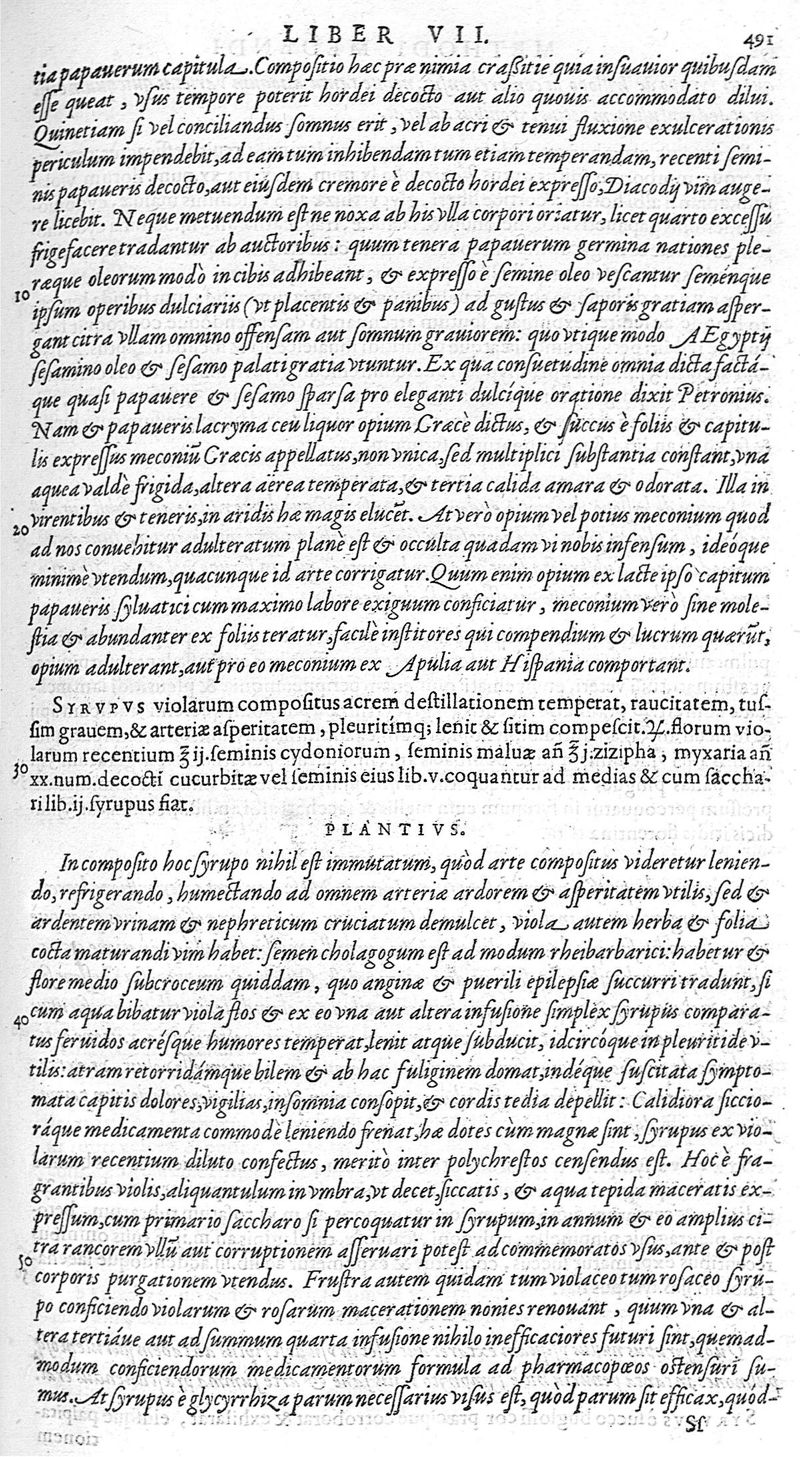 LIBER VII. 491
tia papauerum capitula. Compositio hæc præ nimia craßitie quia insuauior quibusdam
esse queat, vsus tempore poterit hordei decocto aut alio quouis accommodato dilui.
Quinetiam si vel conciliandus somnus erit, vel ab acri & tenui fluxione exulcerationis
periculum impendebit, ad eam tum inhibendam tum etiam temperandam, recenti semi-
nis papaueris decocto, aut eiusdem cremore è decocto hordei expresso, Diacodij vim auge-
re licebit. Neque metuendum est ne noxa ab his vlla corpori oriatur, licet quarto excessu
frigefacere tradantur ab auctoribus: quum tenera papauerum germina nationes ple-
ræque oleorum modò in cibis adhibeant, & expresso è semine oleo vescantur seménque
10 ipsum operibus dulciariis (vt placentis & panibus) ad gustus & saporis gratiam asper-
gant citra vllam omnino offensam aut somnum grauiorem: quo vtique modo AEgyptij
sesamino oleo & sesamo palati gratia vtuntur. Ex qua consuetudine omnia dicta factá-
que quasi papauere & sesamo sparsa pro eleganti dulcíque oratione dixit Petronius.
Nam & papaueris lacryma ceu liquor opium Græcè dictus, & succus è foliis & capitu-
lis expressus meconiũ Græcis appellatus, non vnica, sed multiplici substantia constant, vna
aquea valde frigida, altera aërea temperata, & tertia calida amara & odorata. Illa in
20 virentibus & teneris, in aridis hæ magis elucẽt. At verò opium vel potius meconium quod
ad nos conuehitur adulteratum planè est & occulta quadam vi nobis infensum, ideóque
minimè vtendum, quacunque id arte corrigatur. Quum enim opium ex lacte ipso capitum
papaueris syluatici cum maximo labore exiguum conficiatur, meconium verò sine mole-
stia & abundanter ex foliis teratur, facilè institores qui compendium & lucrum quærũt,
opium adulterant, aut pro eo meconium ex Apulia aut Hispania comportant.
SYRVPVS violarum compositus acrem destillationem temperat, raucitatem, tus-
sim grauem, & arteriæ asperitatem, pleuritimq; lenit & sitim compescit. ♃. florum vio-
larum recentium ℥ ij. seminis cydoniorum, seminis maluæ añ ℥ j. zizipha, myxaria añ
30 xx. num. decocti cucurbitæ vel seminis eius lib. v. coquantur ad medias & cum saccha-
ri lib. ij. syrupus fiat.
PLANTIVS.
In composito hoc syrupo nihil est immutatum, quòd arte compositus videretur lenien-
do, refrigerando, humectando ad omnem arteriæ ardorem & asperitatem vtilis, sed &
ardentem vrinam & nephreticum cruciatum demulcet, viola autem herba & folia
cocta maturandi vim habet: semen cholagogum est ad modum rheibarbarici: habetur &
flore medio subcroceum quiddam, quo anginæ & puerili epilepsiæ succurri tradunt, si
40 cum aqua bibatur violæ flos & ex eo vna aut altera infusione simplex syrupus compara-
tus feruidos acrésque humores temperat, lenit atque subducit, idcircoque in pleuritide v-
tilis: atram retorridámque bilem & ab hac fuliginem domat, indéque suscitata sympto-
mata capitis dolores, vigilias, insomnia consopit, & cordis tedia depellit: Calidiora siccio-
ráque medicamenta commodè leniendo frenat, hæ dotes cùm magnæ sint, syrupus ex vio-
larum recentium diluto confectus, meritò inter polychrestos censendus est. Hoc è fra-
grantibus violis, aliquantulum in vmbra, vt decet, siccatis, & aqua tepida maceratis ex-
pressum, cum primario saccharo si percoquatur in syrupum, in annum & eo amplius ci-
50 tra rancorem vllũ aut corruptionem asseruari potest ad commemoratos vsus, ante & post
corporis purgationem vtendus. Frustra autem quidam tum violaceo tum rosaceo syru-
po conficiendo violarum & rosarum macerationem nonies renouant, quum vna & al-
tera tertiáue aut ad summum quarta infusione nihilo inefficaciores futuri sint, quemad-
modum conficiendorum medicamentorum formula ad pharmacopœos ostensuri su-
mus. At syrupus è glycyrrhiza parum necessarius visus est, quòd parum sit efficax, quód-
Sſ